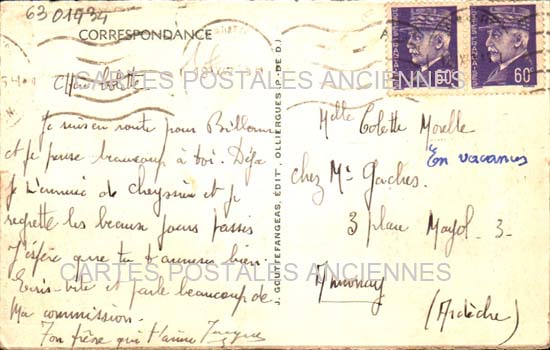 63 01934
CORRESPONDANCE
POSTES FRANÇAISES
60c
POSTES FRANÇAISES
60c
CARTES POSTALES ANCIENNES
Chère Colette
Je suis en route pour Billom
et je pense beaucoup à toi. Déjà
je m'ennuie de Cheyssieu et je
regrette les beaux jours passés
J'espère que tu t'amuses bien.
Ecris-vite et parle beaucoup de
Ma commission.
Ton frère qui t'aime
J. GOUTTEFANGEAS, ÉDITr, OLLIERGUES (P.-DE-D.)
Melle Colette Morelle
En vacances
chez Mr Gaches.
3 place Mayol - 3 -
Annonay
(Ardèche)
CARTES POSTALES ANCIENNES